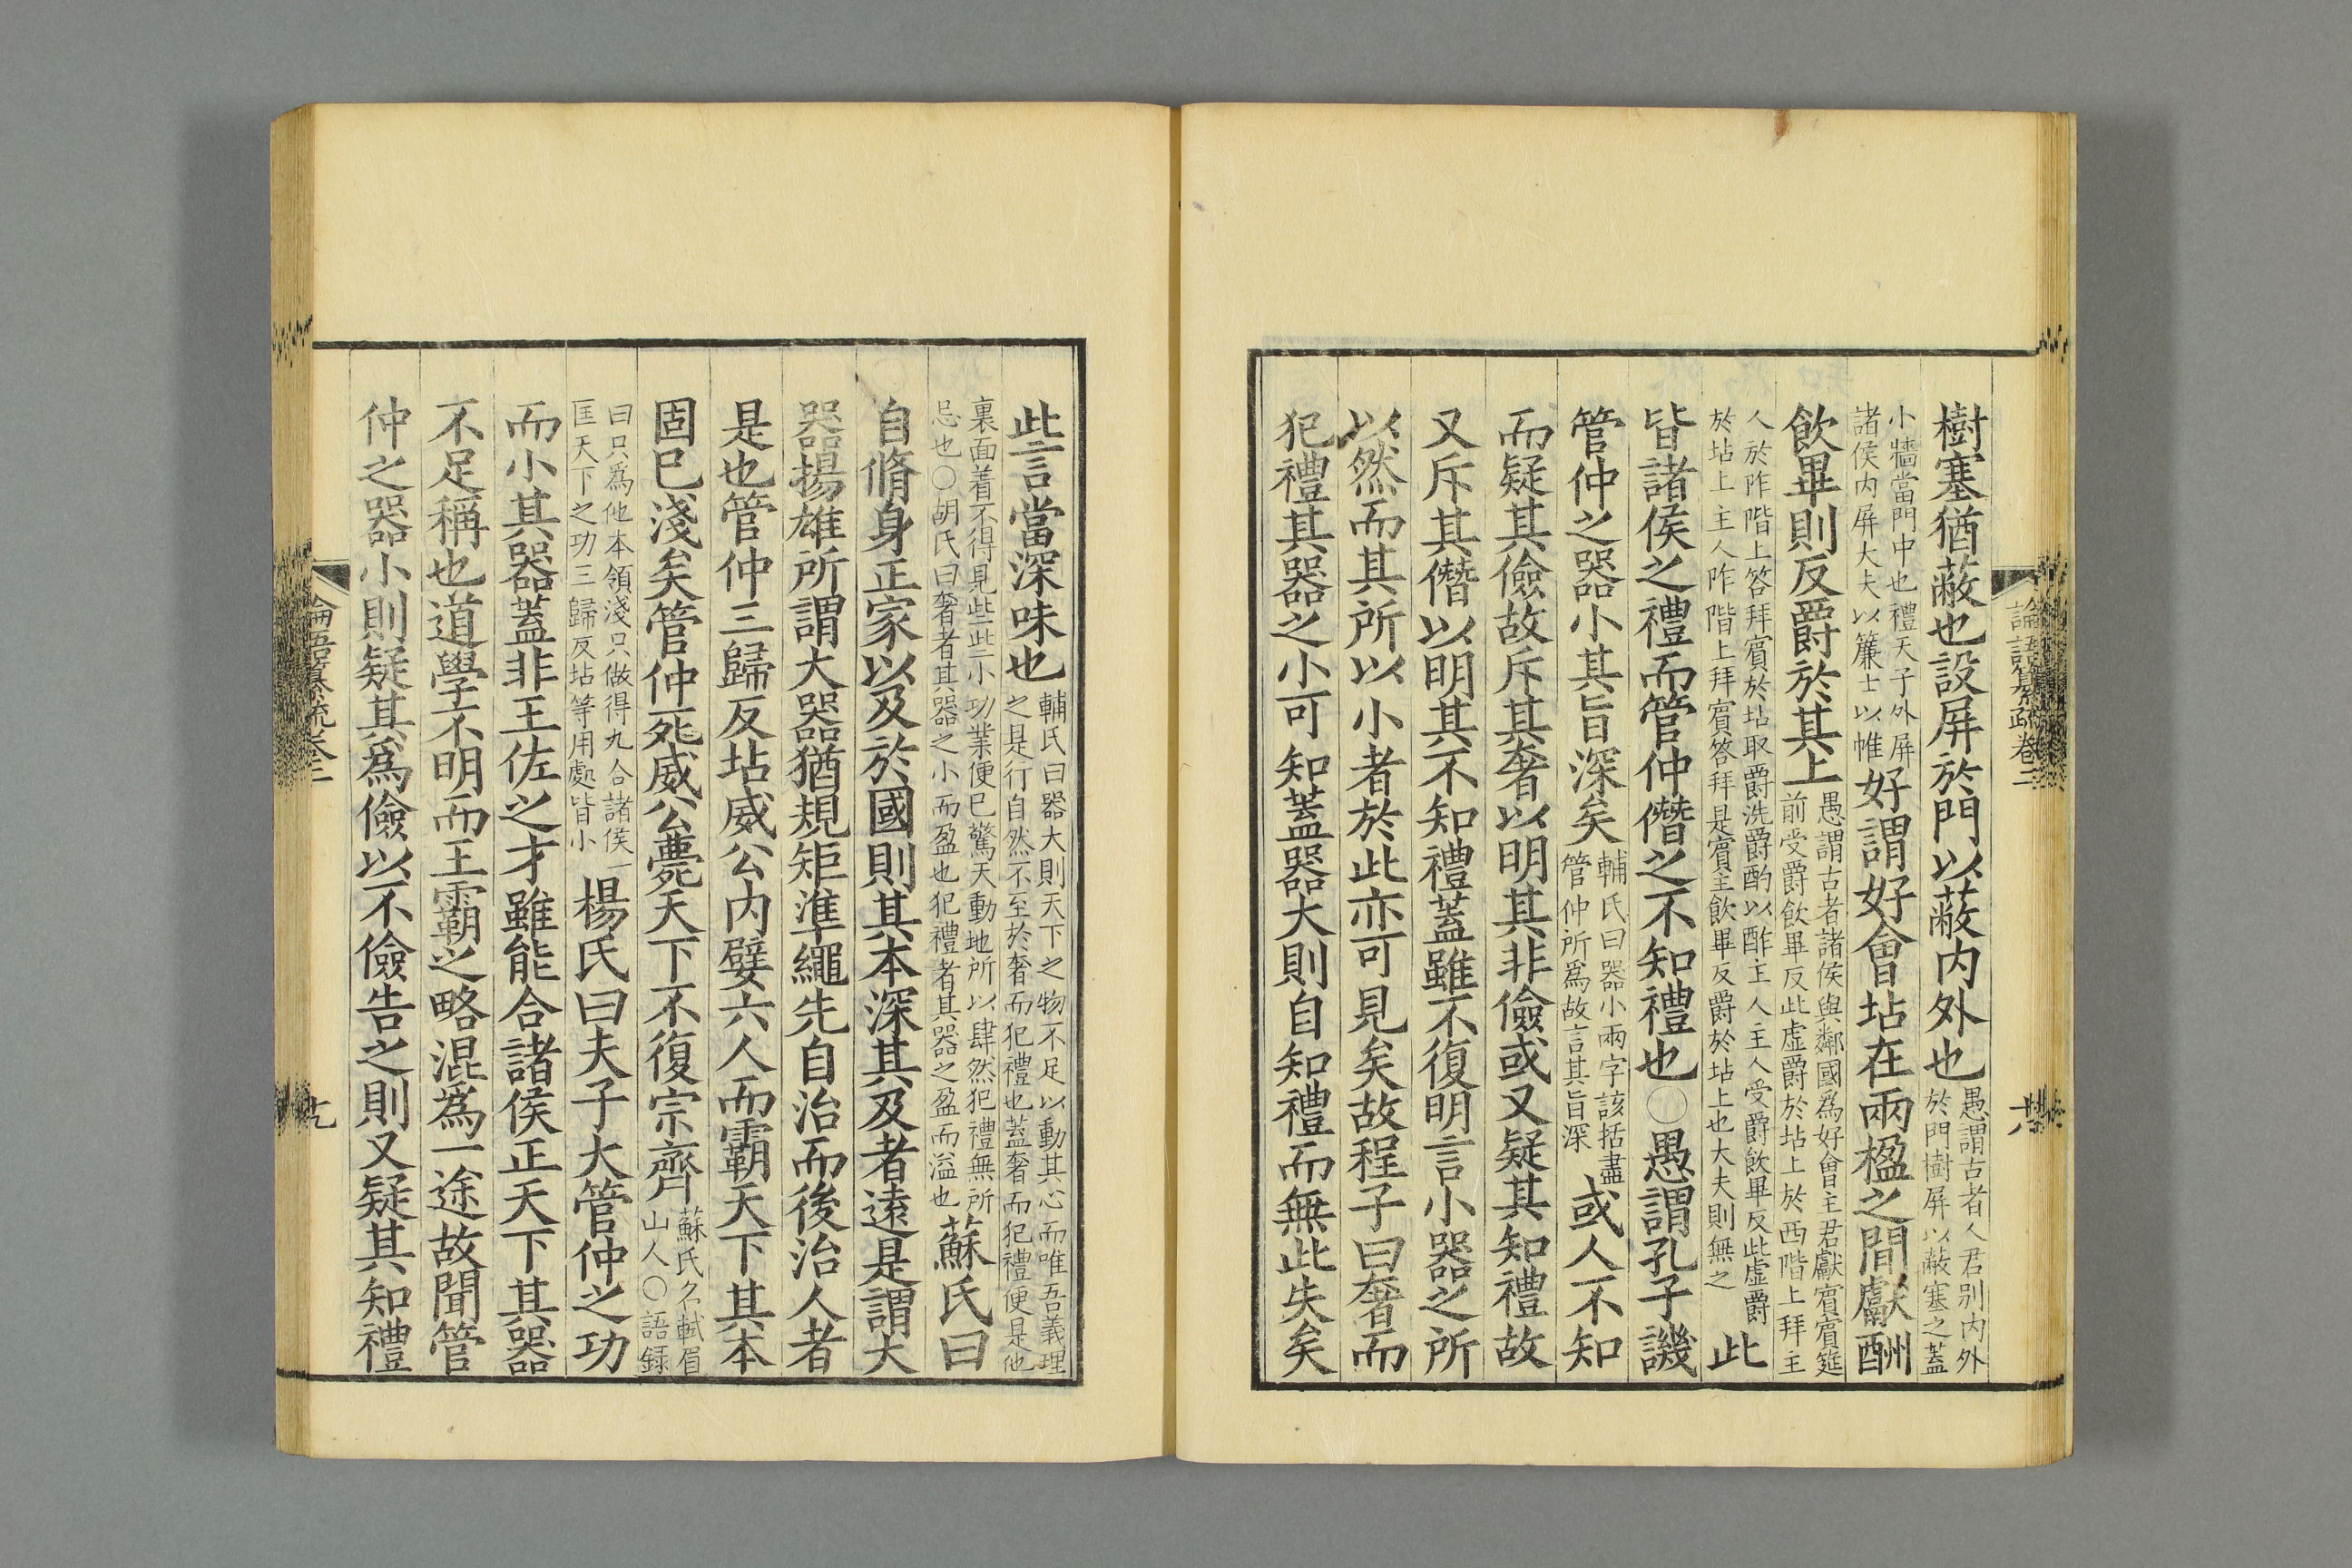 樹塞猶蔽也設屏於門以蔽内外也愚謂古者人君别内外
於門樹屏以蔽塞之蓋
小牆當門中也禮天子外屏
諸侯内屏大夫以簾士以帷好謂好會坫在兩楹之間獻酬
飲畢則反爵於其上愚謂古者諸侯與鄰國爲好會主君獻賓賓筵
前受爵飲畢反此虚爵於坫上於西階上拜主
人於阼階上答拜賓於坫取爵洗爵酌以酢主人主人受爵飲畢反此虚爵
於坫上主人阼階上拜賓答拜是賓主飲畢反爵於坫上也大夫則無之此
皆諸侯之禮而管仲僭之不知禮也○愚謂孔子譏
管仲之器小其旨深矣輔氏曰器小兩字該括盡
管仲所爲故言其旨深或人不知
而疑其儉故斥其奢以明其非儉或又疑其知禮故
又斥其僭以明其不知禮蓋雖不復明言小器之所
以然而其所以小者於此亦可見矣故程子曰奢而
犯禮其器之小可知蓋器大則自知禮而無此失矣
論語纂疏卷二
十八
此言當深味也輔氏曰器大則天下之物不足以動其心而唯吾義理
之是行自然不至於奢而犯禮也蓋奢而犯禮便是他
裏面着不得見些些小功業便已驚天動地所以肆然犯禮無所
忌也○胡氏曰奢者其器之小而盈也犯禮者其器之盈而溢也蘇氏曰
自脩身正家以及於國則其本深其及者遠是謂大
器揚雄所謂大器猶規矩準繩先自治而後治人者
是也管仲三歸反坫威公内嬖六人而霸天下其本
固已淺矣管仲死威公薨天下不復宗齊蘇氏名軾眉
山人○語録
曰只爲他本領淺只做得九合諸侯一
匡天下之功三歸反坫等用處皆小楊氏曰夫子大管仲之功
而小其器蓋非王佐之才雖能合諸侯正天下其器
不足稱也道學不明而王霸之略混爲一途故聞管
仲之器小則疑其爲儉以不儉告之則又疑其知禮
論語纂疏卷二
十九